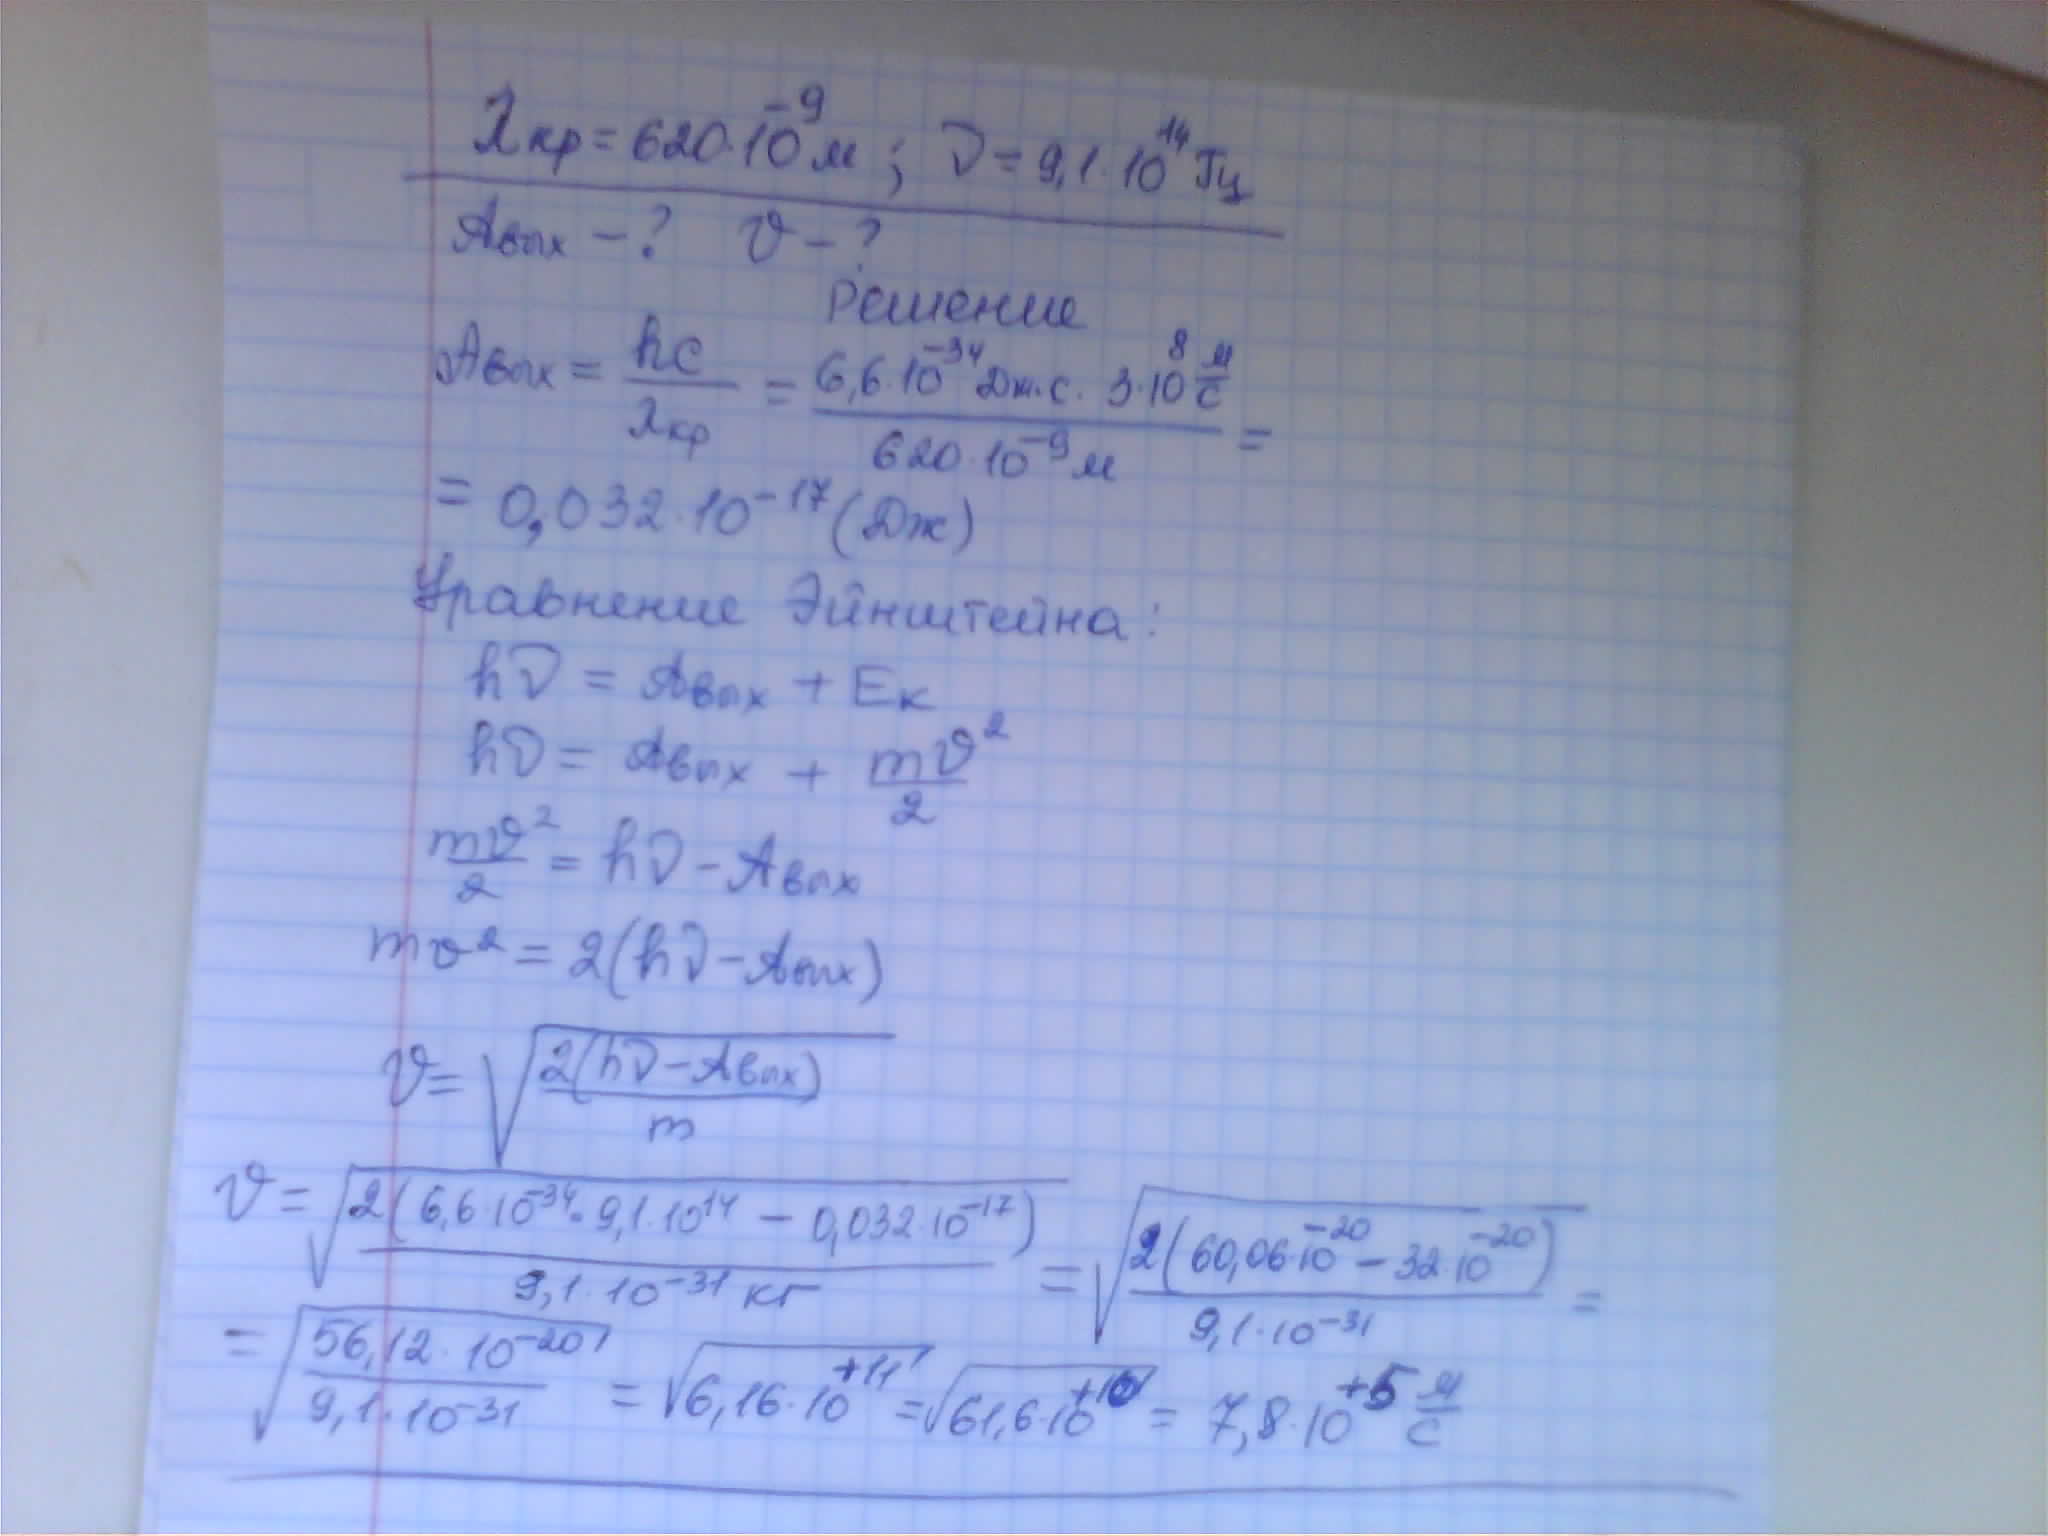 λкр = 620·10⁻⁹ м ; ν = 9,1·10¹⁴ Гц
Aвых – ? ϑ – ?
Решение
Aвых = hc/λкр = (6,6·10⁻³⁴ Дж·с · 3·10⁸ м/с)/(620·10⁻⁹ м) =
= 0,032·10⁻¹⁷ (Дж)
Уравнение Эйнштейна:
hν = Aвых + Eк
hν = Aвых + mϑ²/2
mϑ²/2 = hν – Aвых
mϑ² = 2(hν – Aвых)
ϑ = √(2(hν – Aвых)/m)
ϑ = √(2(6,6·10⁻³⁴·9,1·10¹⁴ – 0,032·10⁻¹⁷)/(9,1·10⁻³¹ кг)) = √(2(60,06·10⁻²⁰ – 32·10⁻²⁰)/(9,1·10⁻³¹)) =
= √(56,12·10⁻²⁰/(9,1·10⁻³¹)) = √(6,16·10⁺¹¹) = √(61,6·10⁺¹⁰) = 7,8·10⁺⁵ м/с